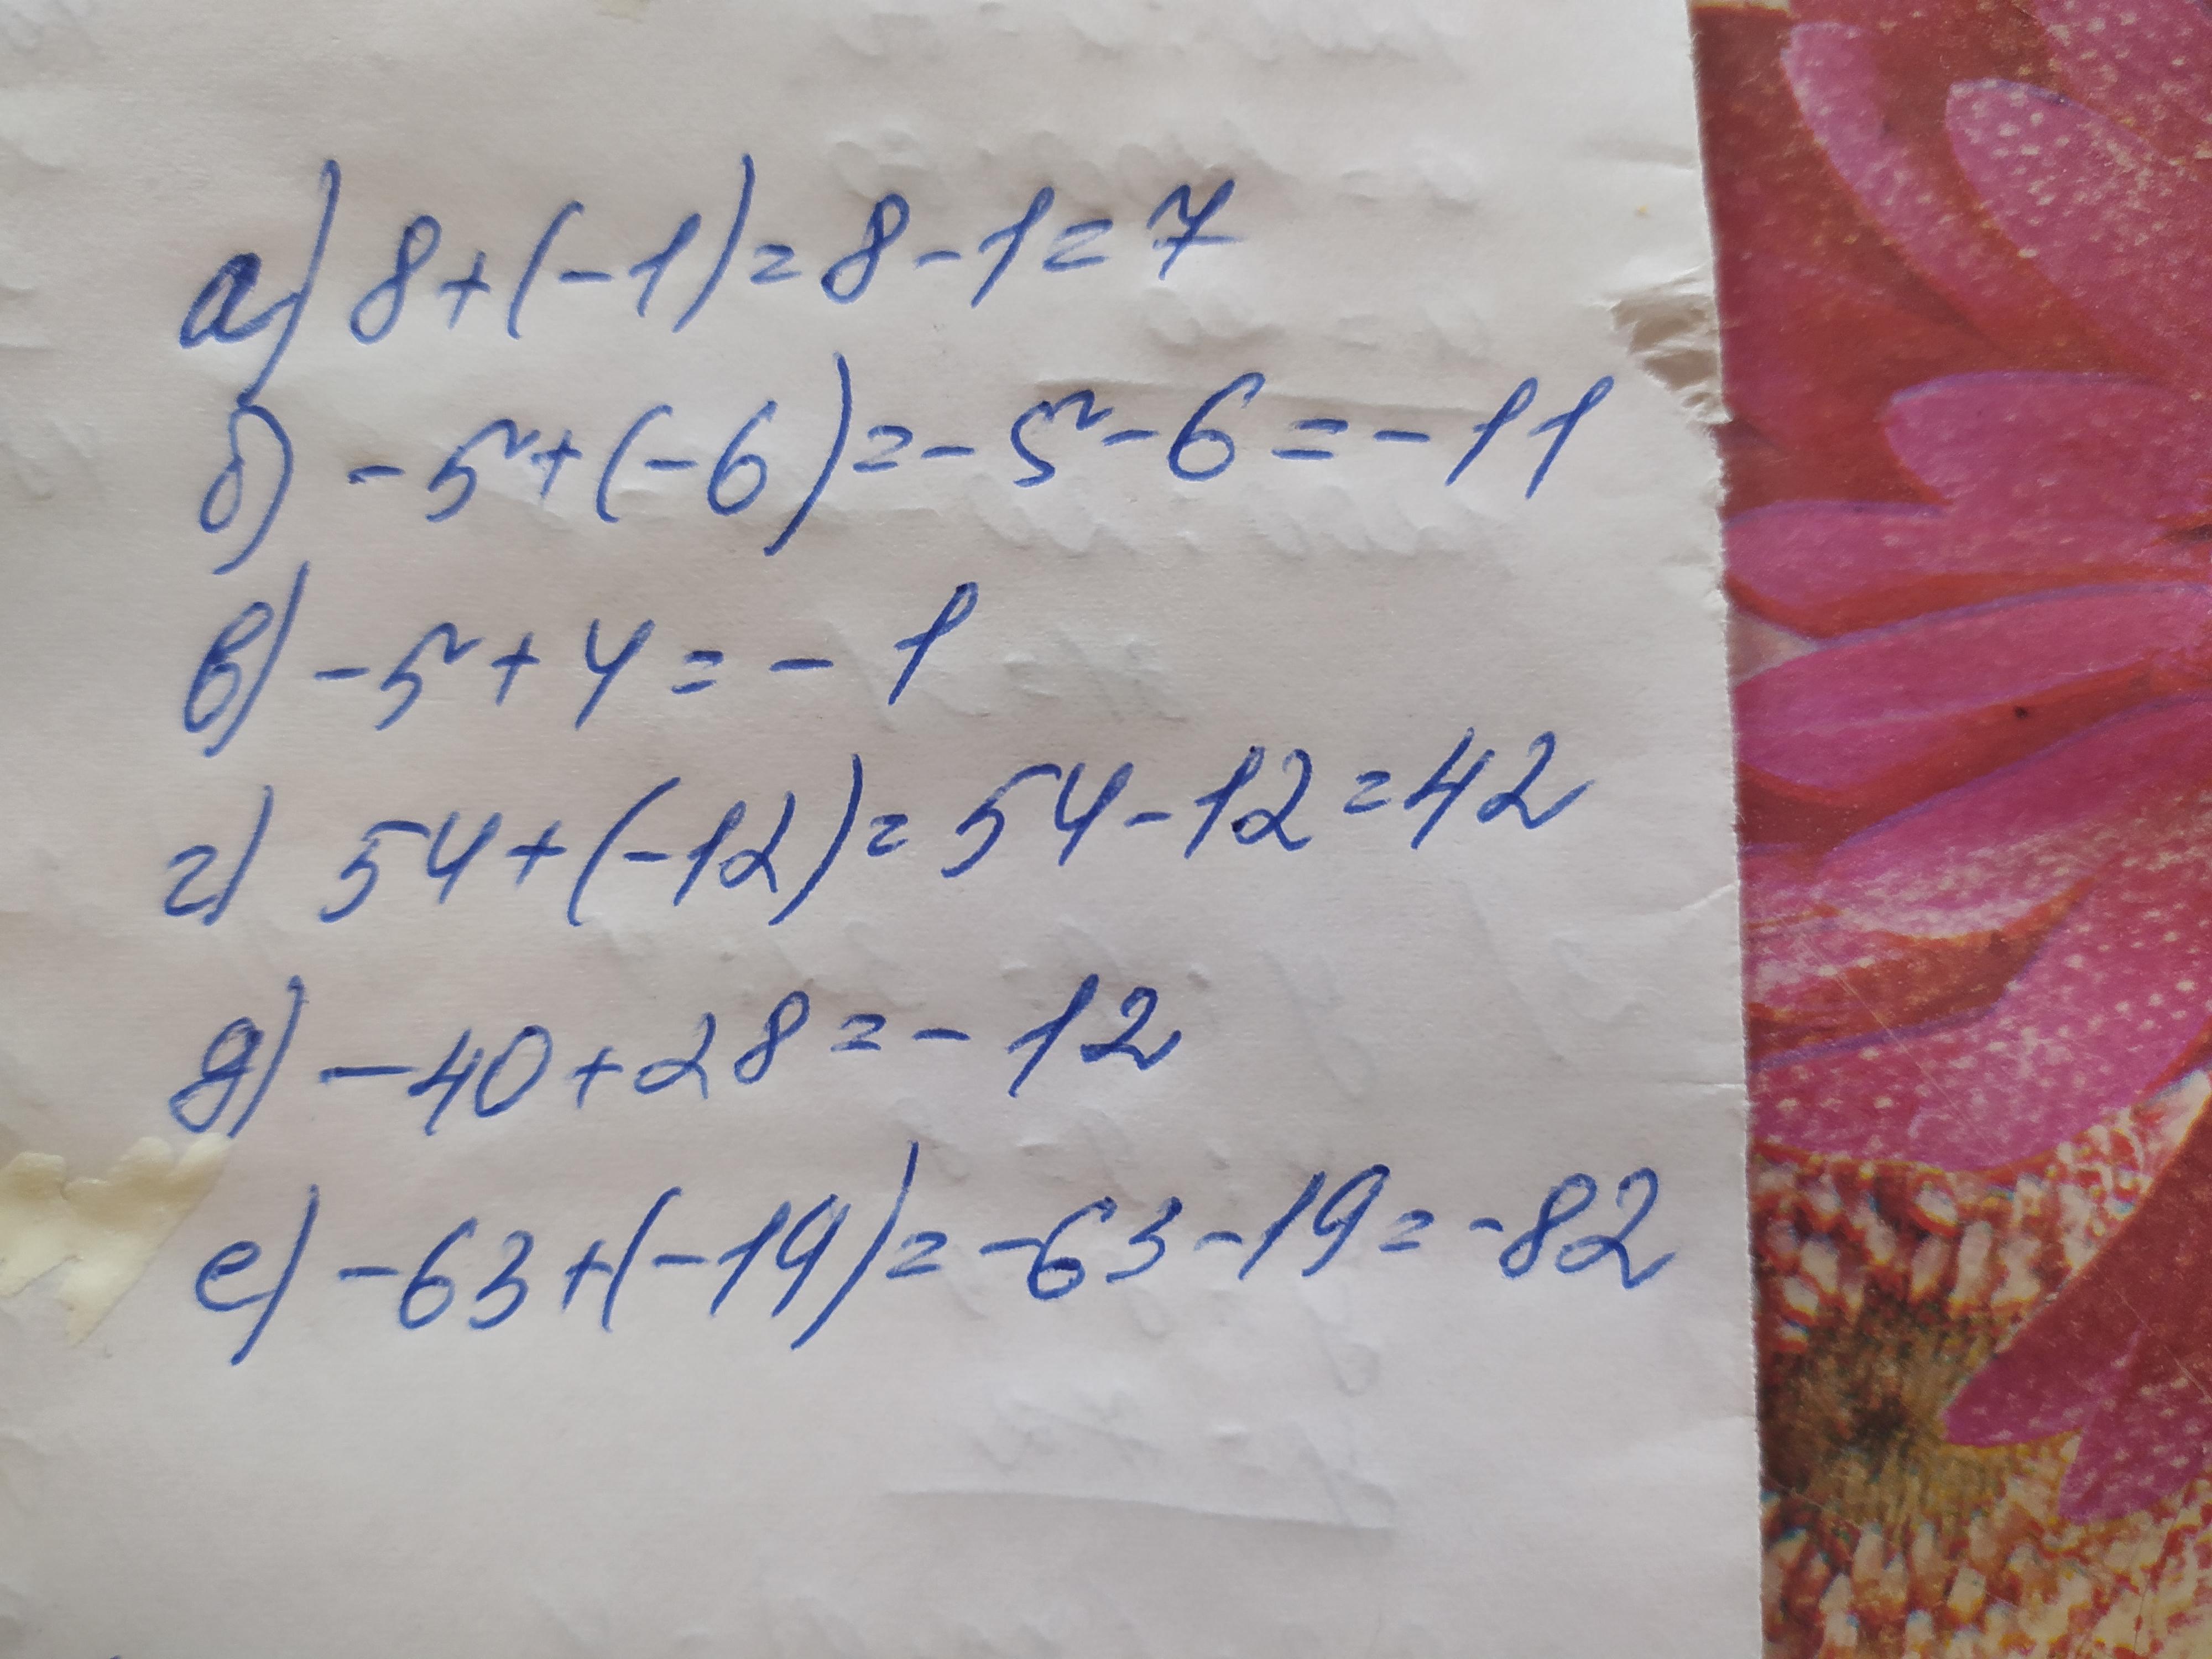 а) 8+(-1)=8-1=7
б) -5+(-6)=-5-6=-11
в) -5+4=-1
г) 54+(-12)=54-12=42
д) -40+28=-12
е) -63+(-19)=-63-19=-82